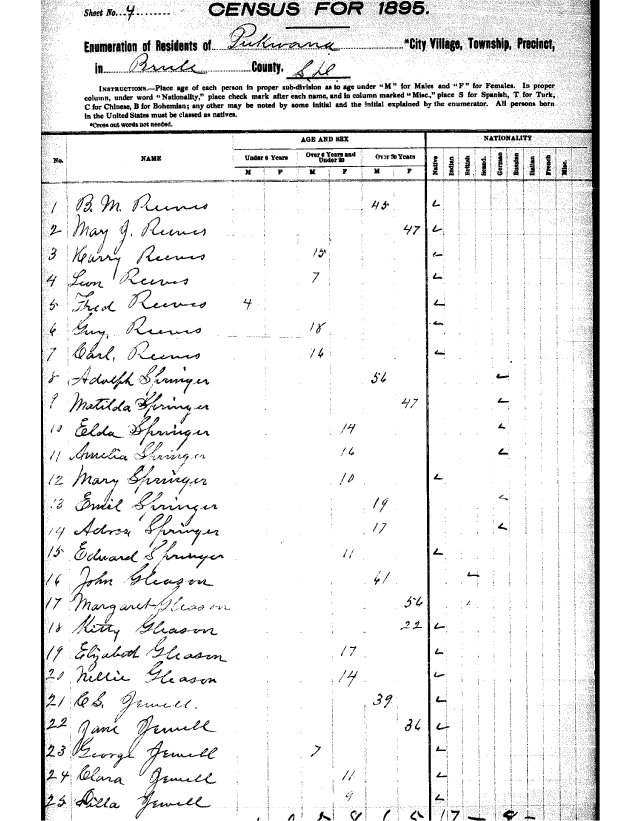 Sheet No. 4
CENSUS FOR 1895.
Enumeration of Residents of Pukwana *City Village, Township, Precinct,
in Brule County, S.D.
INSTRUCTIONS.—Place age of each person in proper sub-division as to age under "M" for Males and "F" for Females. In proper
column, under word "Nationality," place check mark after each name, and in column marked "Misc.," place S for Spanish, T for Turk,
C for Chinese, B for Bohemian; any other may be noted by some initial and the initial explained by the enumerator. All persons born
in the United States must be classed as natives.
*Cross out words not needed.
No. NAME AGE AND SEX NATIONALITY
Under 6 Years Over 6 Years and Under 20 Over 20 Years Native Indian British Scand. German Russian Italian French Misc.
M F M F M F
1 B. M. Reeves 45
2 May J. Reeves 47
3 Harry Reeves 15
4 Leon Reeves 7
5 Fred Reeves 4
6 Guy, Reeves 18
7 Carl, Reeves 16
8 Adolph Springer 56
9 Matilda Springer 47
10 Elda Springer 14
11 Amelia Springer 16
12 Mary Springer 10
13 Emil Springer 19
14 Springer 17
15 Edward Springer 11
16 John Gleason 61
17 Margaret Gleason 56
18 Kitty Gleason 22
19 Elizabeth Gleason 17
20 Nellie Gleason 14
21 C.S. Jewell. 39
22 Jane Jewell 36
23 George Jewell 7
24 Clara Jewell 11
25 Dilla Jewell 9